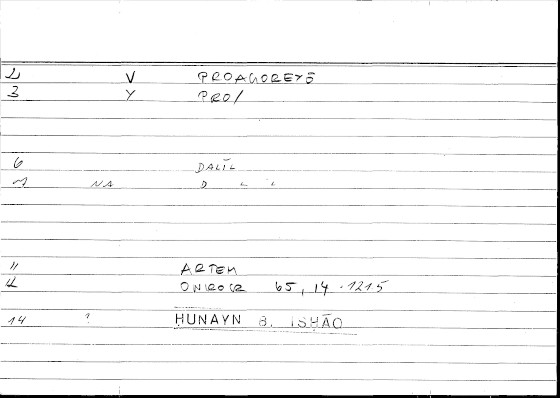 2 V PROAGOREYŌ
3 Y PRO/
6 DALĪL
NA D L
11 ARTEM
12 ONIROCR 65, 14 - 1215
14 ? ḤUNAYN B. ISḤĀQ